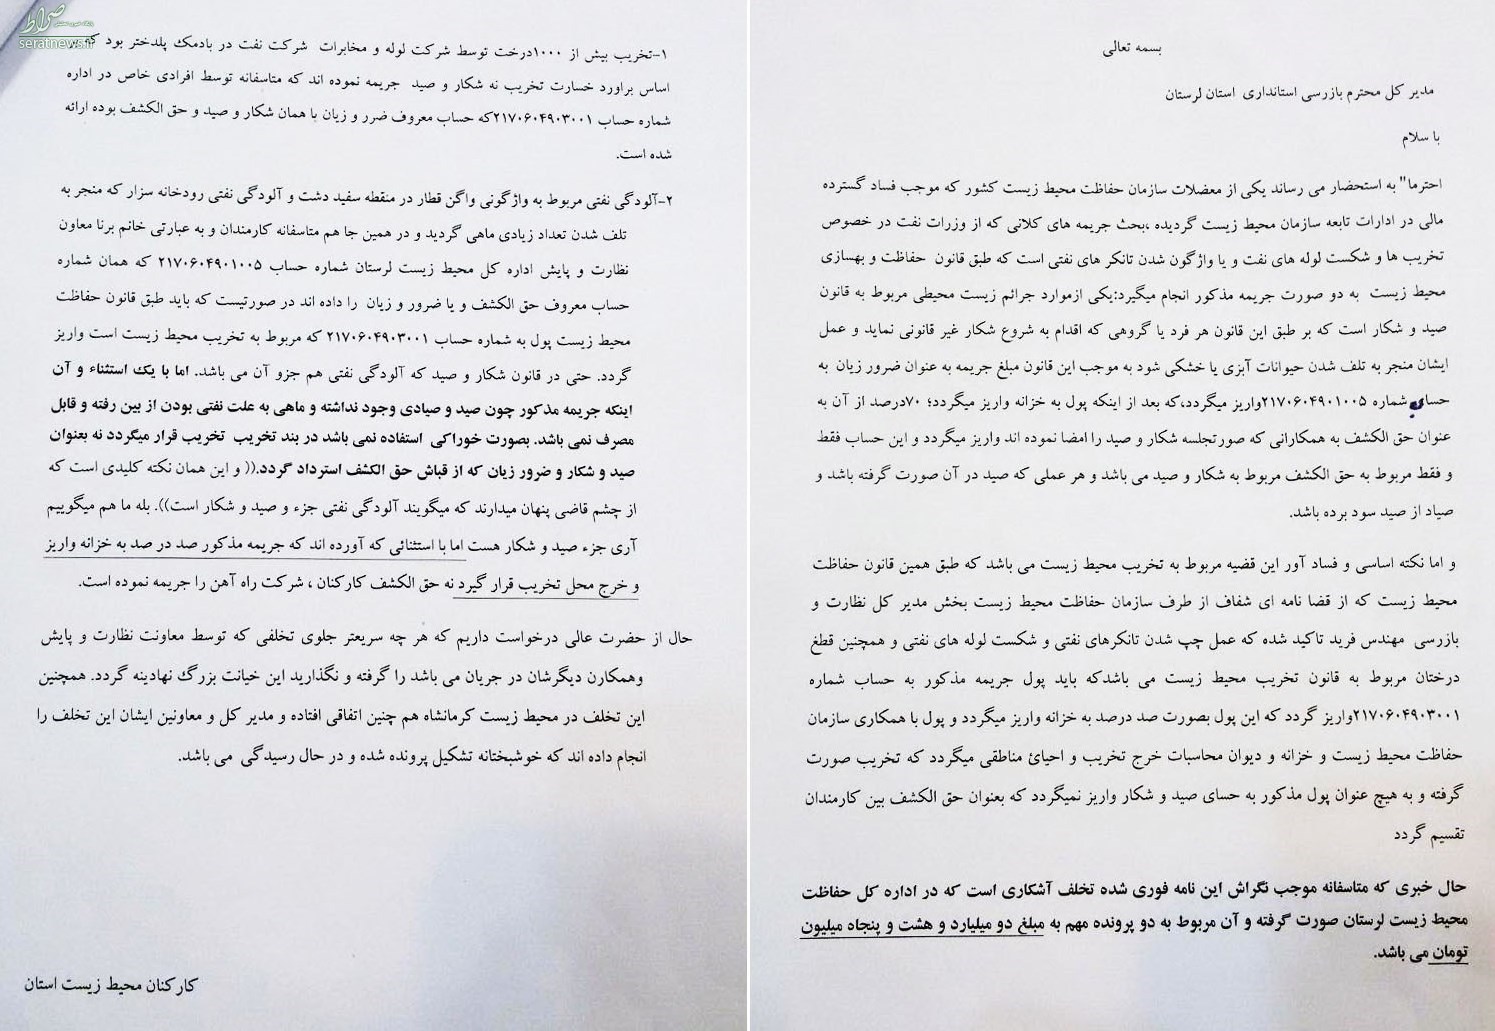 بسمه تعالی
مدیر کل محترم بازرسی استانداری استان لرستان
با سلام
احترما" به استحضار می رساند یکی از معضلات سازمان حفاظت محیط زیست کشور که موجب فساد گسترده
مالی در ادارات تابعه سازمان محیط زیست گردیده ،بحث جریمه های کلانی که از وزرات نفت در خصوص
تخریب ها و شکست لوله های نفت و یا واژگون شدن تانکر های نفتی است که طبق قانون حفاظت و بهسازی
محیط زیست به دو صورت جریمه مذکور انجام میگیرد:یکی ازموارد جرائم زیست محیطی مربوط به قانون
صید و شکار است که بر طبق این قانون هر فرد یا گروهی که اقدام به شروع شکار غیر قانونی نماید و عمل
ایشان منجر به تلف شدن حیوانات آبزی یا خشکی شود به موجب این قانون مبلغ جریمه به عنوان ضرور زیان به
حساب شماره ۲۱۷۰۶۰۴۹۰۱۰۰۵واریز میگردد،که بعد از اینکه پول به خزانه واریز میگردد؛ ۷۰درصد از آن به
عنوان حق الکشف به همکارانی که صورتجلسه شکار و صید را امضا نموده اند واریز میگردد و این حساب فقط
و فقط مربوط به حق الکشف مربوط به شکار و صید می باشد و هر عملی که صید در آن صورت گرفته باشد و
صیاد از صید سود برده باشد.
و اما نکته اساسی و فساد آور این قضیه مربوط به تخریب محیط زیست می باشد که طبق همین قانون حفاظت
محیط زیست که از قضا نامه ای شفاف از طرف سازمان حفاظت محیط زیست بخش مدیر کل نظارت و
بازرسی مهندس فرید تاکید شده که عمل چپ شدن تانکرهای نفتی و شکست لوله های نفتی و همچنین قطع
درختان مربوط به قانون تخریب محیط زیست می باشدکه باید پول جریمه مذکور به حساب شماره
۲۱۷۰۶۰۴۹۰۳۰۰۱واریز گردد که این پول بصورت صد درصد به خزانه واریز میگردد و پول با همکاری سازمان
حفاظت محیط زیست و خزانه و دیوان محاسبات خرج تخریب و احیائ مناطقی میگردد که تخریب صورت
گرفته و به هیچ عنوان پول مذکور به حسای صید و شکار واریز نمیگردد که بعنوان حق الکشف بین کارمندان
تقسیم گردد
حال خبری که متاسفانه موجب نگراش این نامه فوری شده تخلف آشکاری است که در اداره کل حفاظت
محیط زیست لرستان صورت گرفته و آن مربوط به دو پرونده مهم به مبلغ دو میلیارد و هشت و پنجاه میلیون
تومان می باشد.
صراط
seratnews.ir
۱-تخریب بیش از ۱۰۰۰درخت توسط شرکت لوله و مخابرات شرکت نفت در بادمک پلدختر بود که
اساس براورد خسارت تخریب نه شکار و صید جریمه نموده اند که متاسفانه توسط افرادی خاص در اداره
شماره حساب ۲۱۷۰۶۰۴۹۰۳۰۰۱که حساب معروف ضرر و زیان با همان شکار و صید و حق الکشف بوده ارائه
شده است.
۲-آلودگی نفتی مربوط به واژگونی واگن قطار در منقطه سفید دشت و آلودگی نفتی رودخانه سزار که منجر به
تلف شدن تعداد زیادی ماهی گردید و در همین جا هم متاسفانه کارمندان و به عبارتی خانم برنا معاون
نظارت و پایش اداره کل محیط زیست لرستان شماره حساب ۲۱۷۰۶۰۴۹۰۱۰۰۵ که همان شماره
حساب معروف حق الکشف و یا ضرور و زیان را داده اند در صورتیست که باید طبق قانون حفاظت
محیط زیست پول به شماره حساب ۲۱۷۰۶۰۴۹۰۳۰۰۱ که مربوط به تخریب محیط زیست است واریز
گردد. حتی در قانون شکار و صید که آلودگی نفتی هم جزو آن می باشد.. اما با یک استثناء و آن
اینکه جریمه مذکور چون صید و صیادی وجود نداشته و ماهی به علت نفتی بودن از بین رفته و قابل
مصرف نمی باشد. بصورت خوراکی استفاده نمی باشد در بند تخریب تخریب قرار میگردد نه بعنوان
صید و شکار و ضرور زیان که از قباش حق الکشف استرداد گردد.(( و این همان نکته کلیدی است که
از چشم قاضی پنهان میدارند که میگویند آلودگی نفتی جزء و صید و شکار است)). بله ما هم میگوییم
آری جزء صید و شکار هست اما با استثنائی که آورده اند که جریمه مذکور صد در صد به خزانه واریز
و خرج محل تخریب قرار گیرد نه حق الکشف کارکنان ، شرکت راه آهن را جریمه نموده است.
حال از حضرت عالی درخواست داریم که هر چه سریعتر جلوی تخلفی که توسط معاونت نظارت و پایش
وهمکارن دیگرشان در جریان می باشد را گرفته و نگذارید این خیانت بزرگ نهادینه گردد. همچنین
این تخلف در محیط زیست کرمانشاه هم چنین اتفاقی افتاده و مدیر کل و معاونین ایشان این تخلف را
انجام داده اند که خوشبختانه تشکیل پرونده شده و در حال رسیدگی می باشد.
کارکنان محیط زیست استان